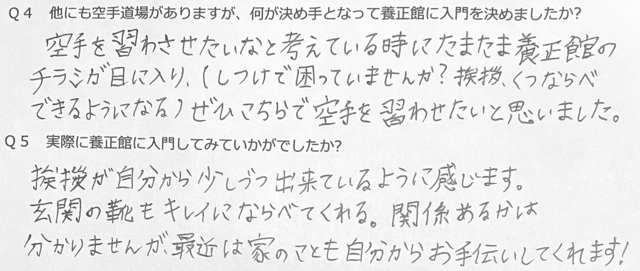 Q４　他にも空手道場がありますが、何が決め手となって養正館に入門を決めましたか?
空手を習わさせたいなと考えている時にたまたま養正館の
チラシが目に入り、(しつけで困っていませんか? 挨拶、くつならべ
できるようになる) ぜひこちらで空手を習わせたいと思いました。
Q５　実際に養正館に入門してみていかがでしたか?
挨拶が自分から少しづつ出来ているように感じます。
玄関の靴もキレイにならべてくれる。関係あるかは
分かりませんが、最近は家のことも自分からお手伝いしてくれます!